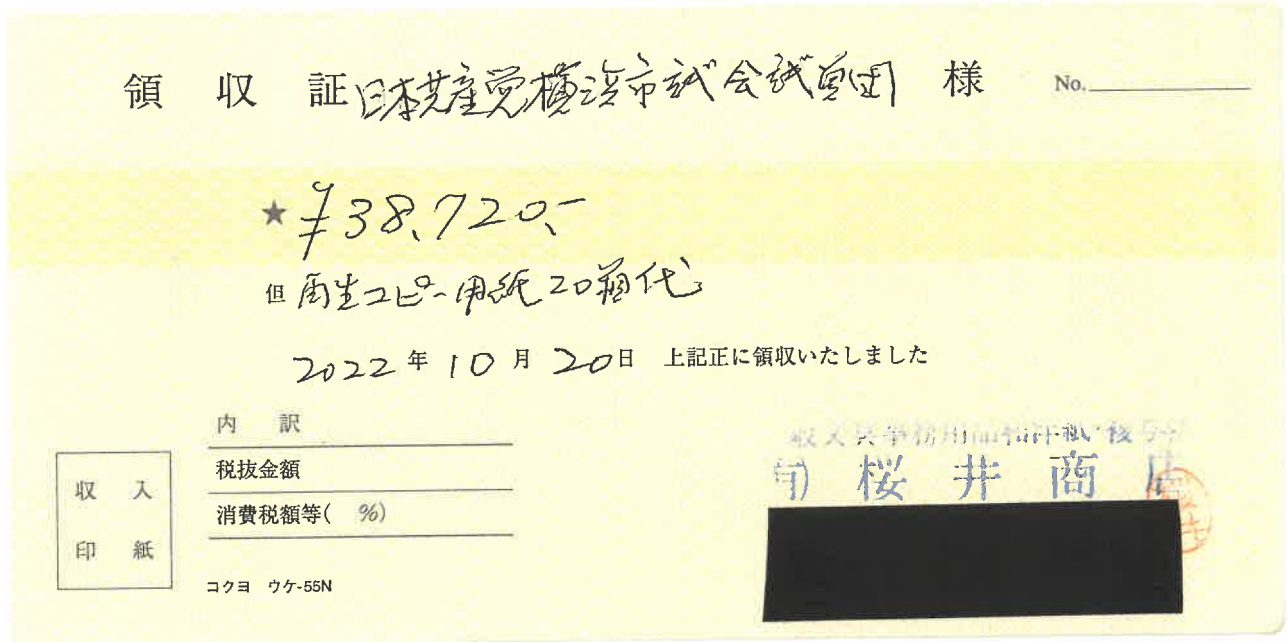 領 収 証 日本共産党横浜市議会議員団 様 No.
★ ¥38,720.-
但 再生コピー用紙20箱代
2022年10月20日 上記正に領収いたしました
内 訳
税抜金額
消費税額等( %)
収 入
印 紙
コクヨ ウケ-55N
有) 桜 井 商 店